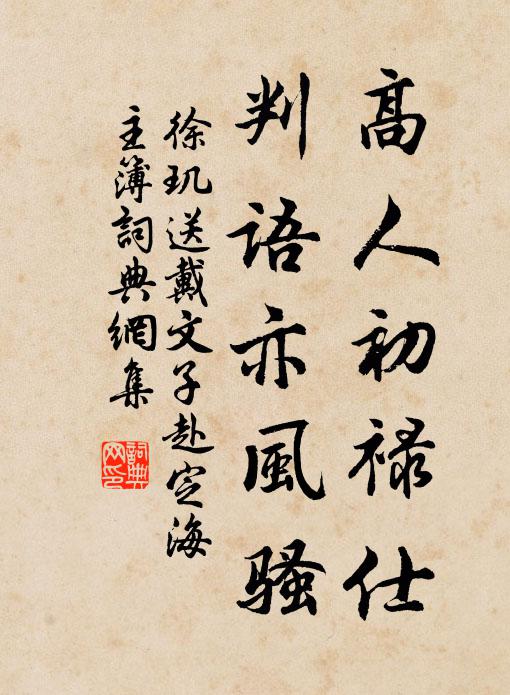 高人初祿仕
判語亦風騷
徐玑送戴文子赴定海
主簿詞典網集
詞典
网印